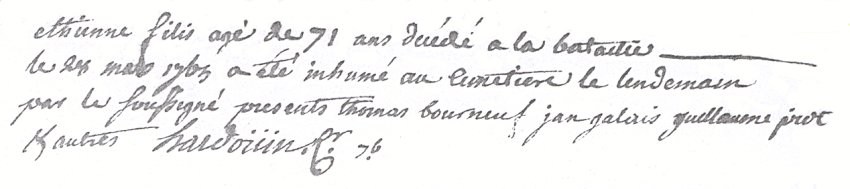 ethienne filis agé de 71 ans décédé a la bataille
le 28 mars 1765 a été inhumé au Cimetiere le lendemain
par le soussigné presents thomas bourneuf jan galais guillaume
& autres hardoüin